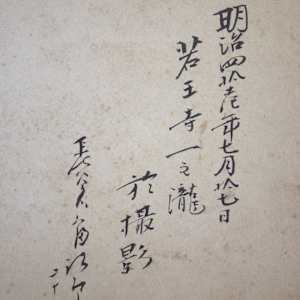 明治四拾壱年七月拾七日
若王寺一之瀧
於撮影